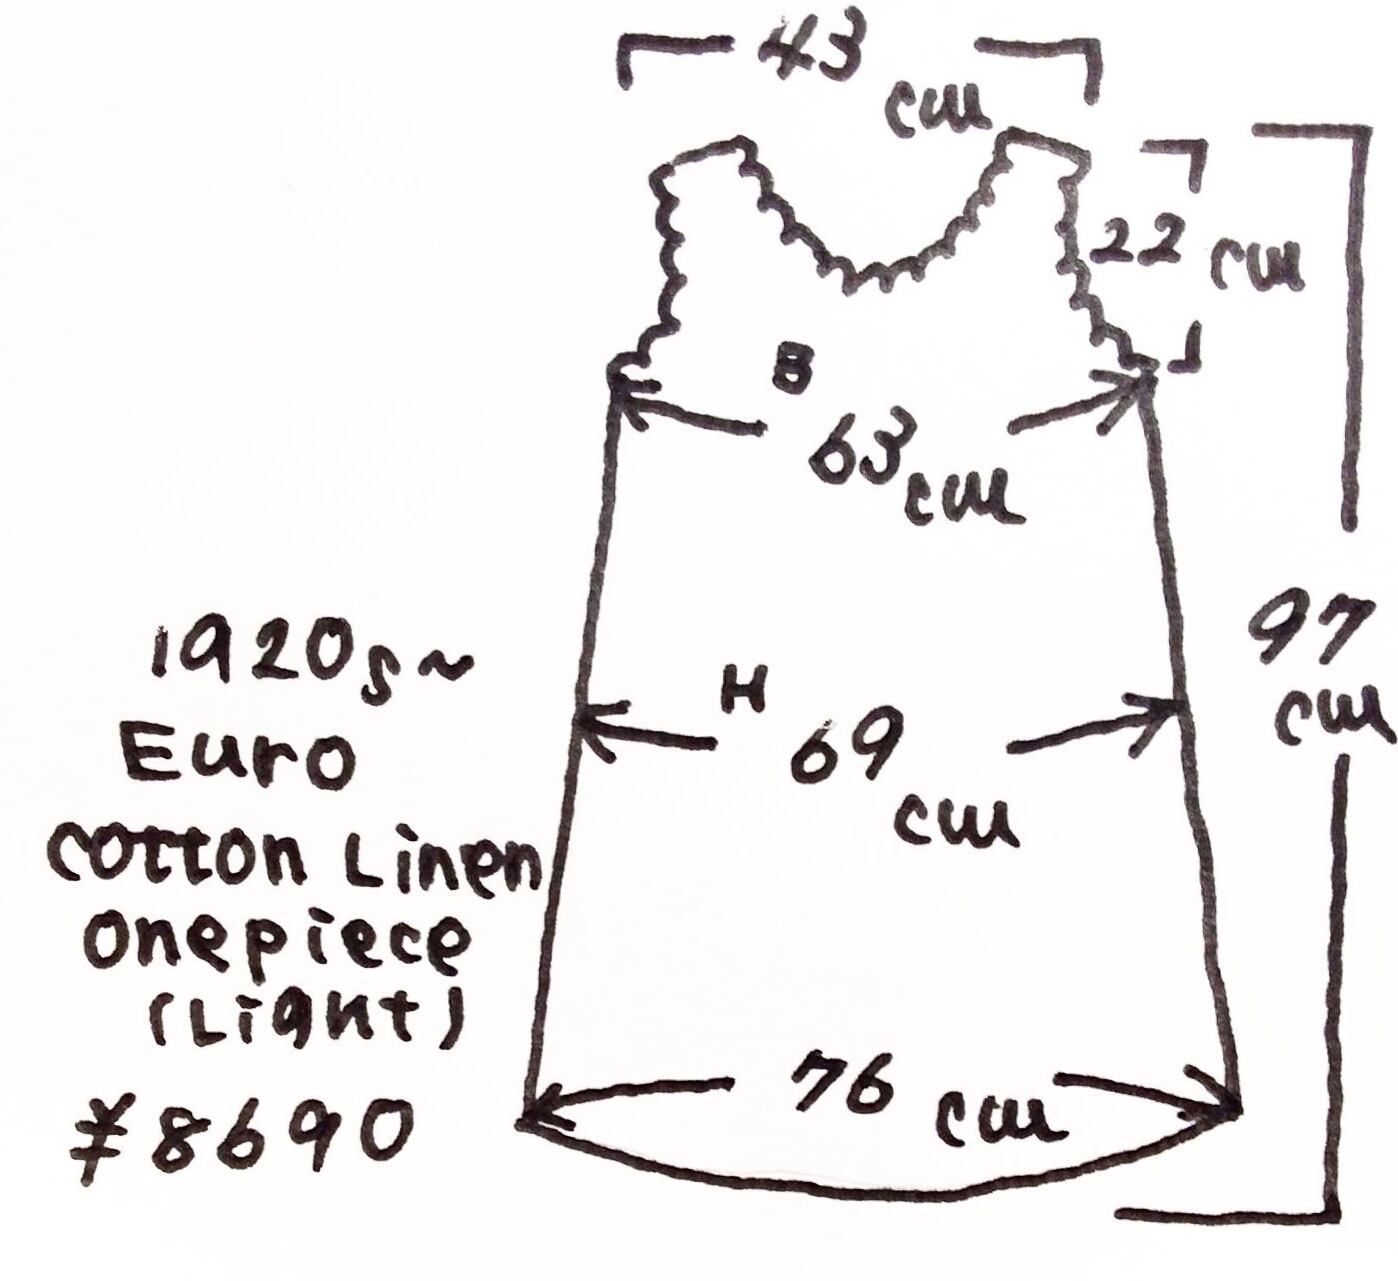 43 cm
22 cm
B
63 cm
97 cm
H
69 cm
76 cm
1920s~
Euro
cotton Linen
onepiece
(Light)
¥8690